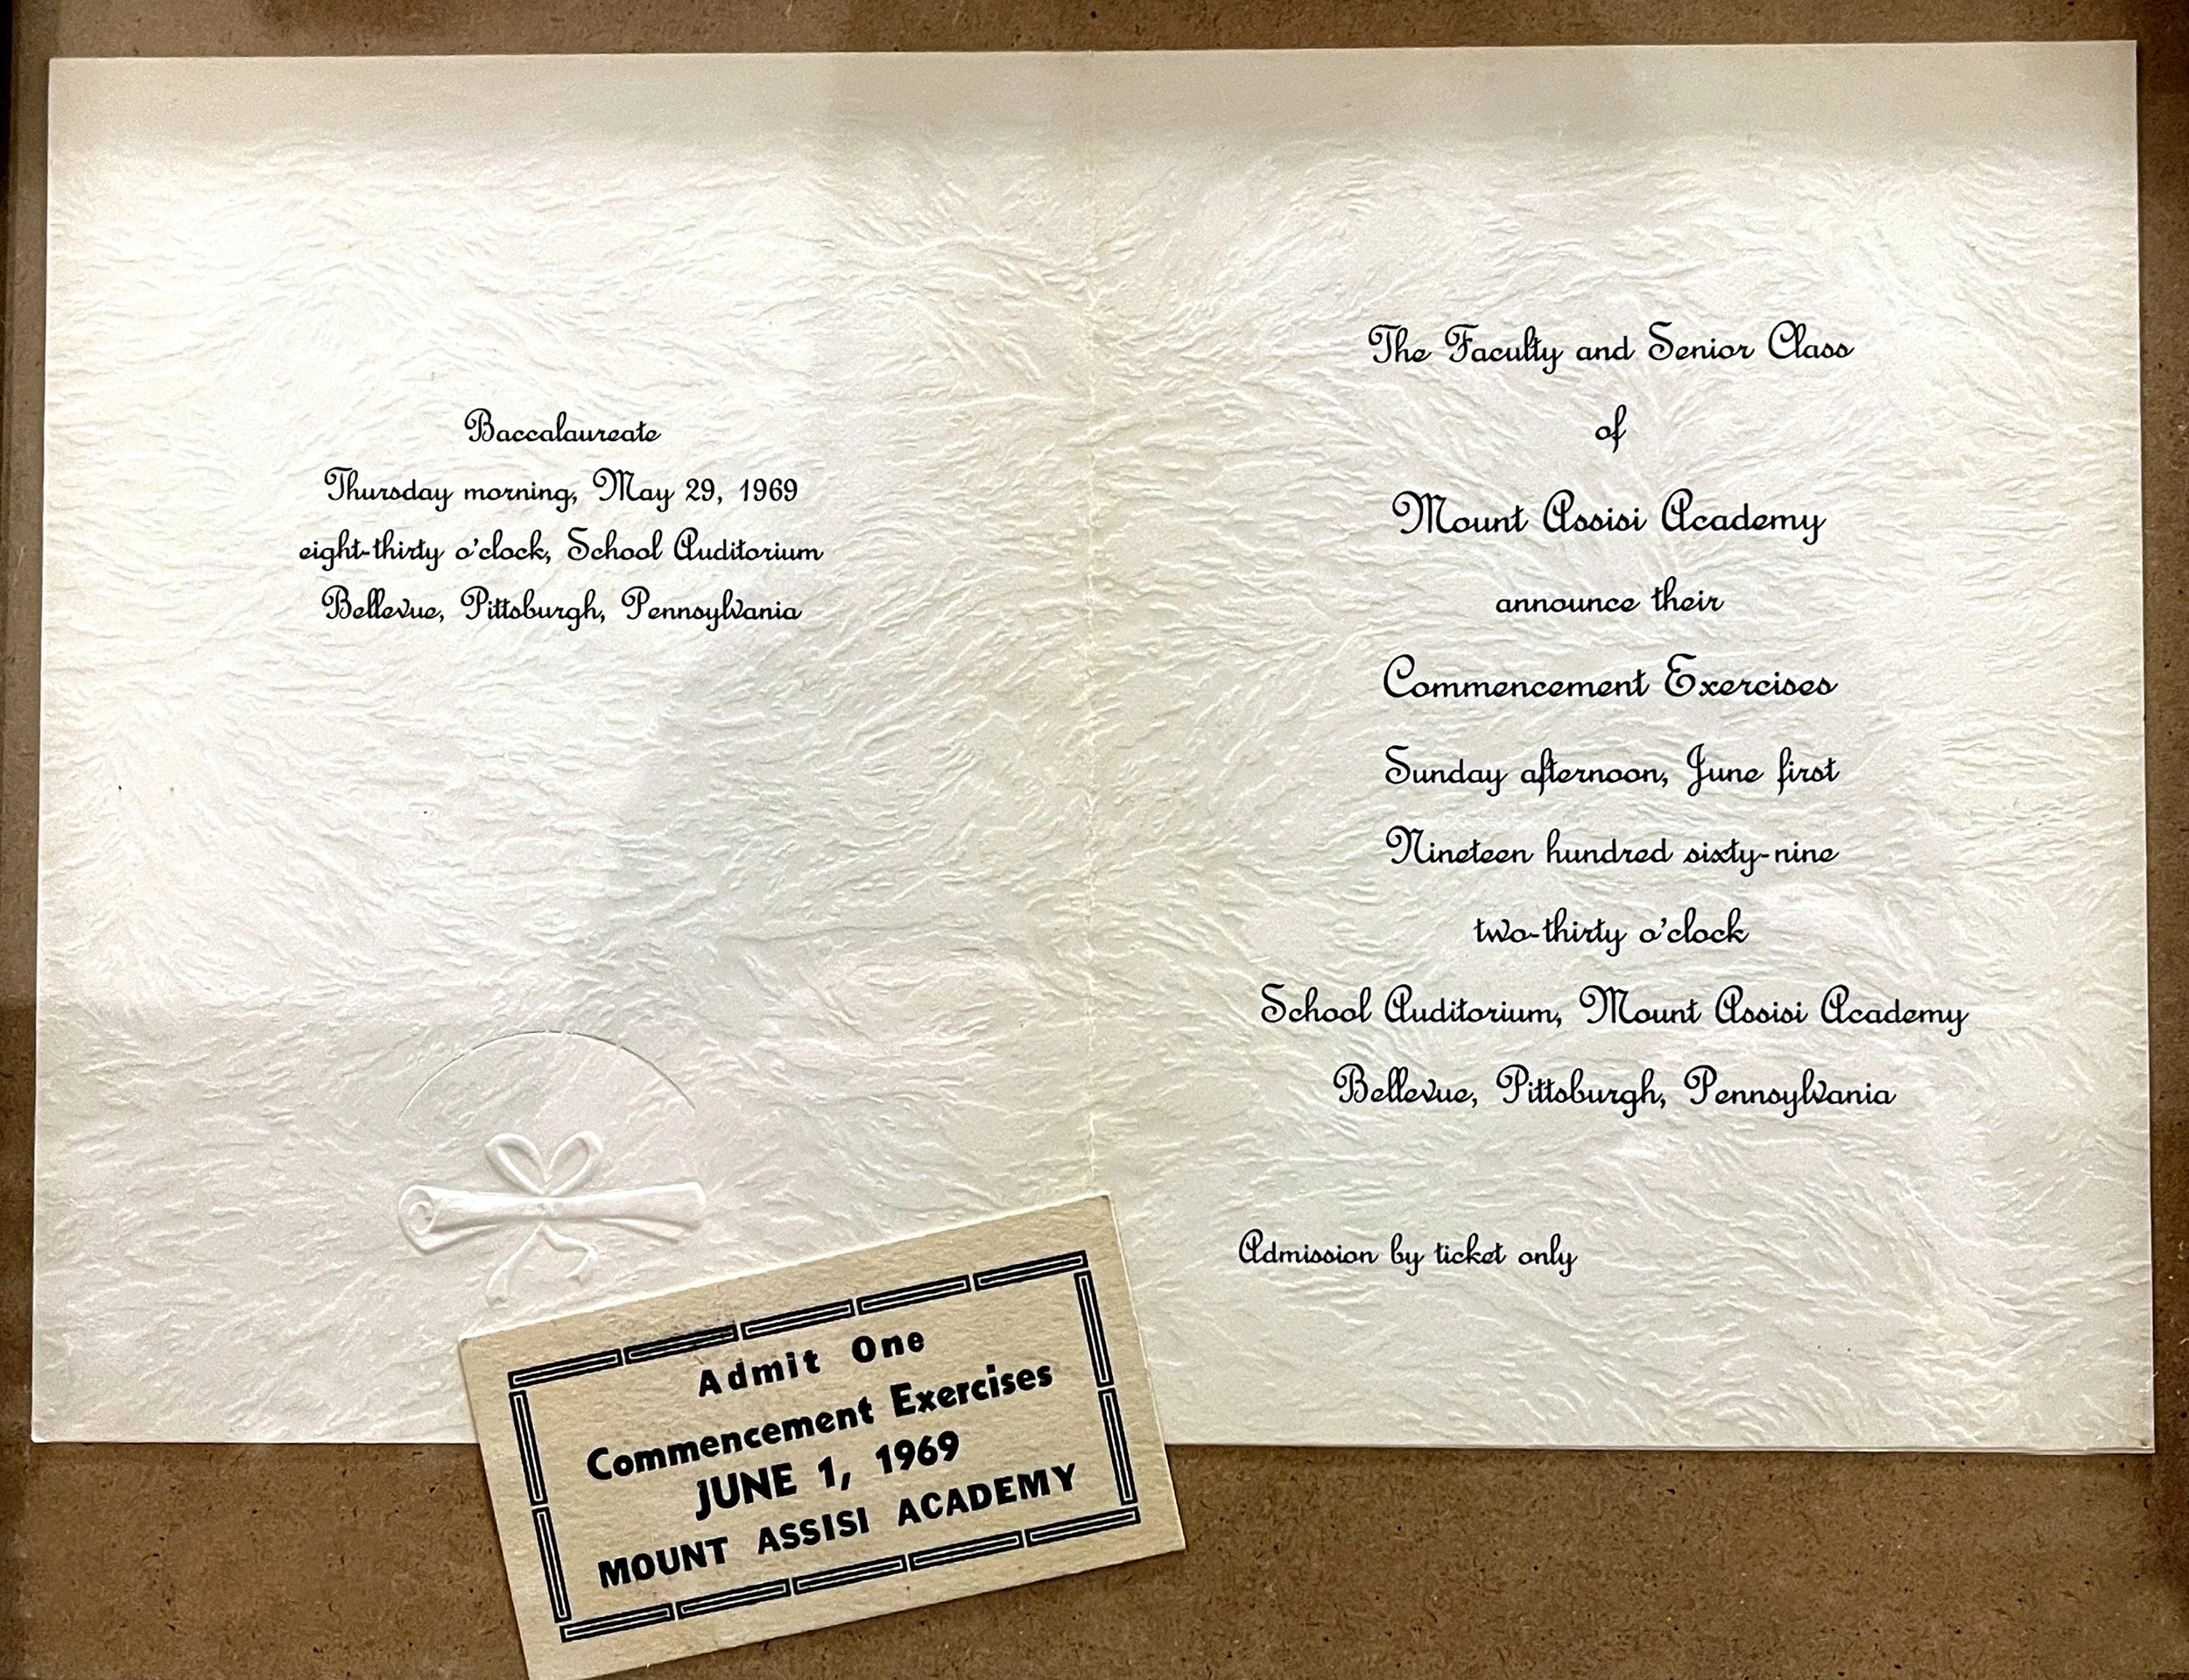 Baccalaureate
Thursday morning, May 29, 1969
eight-thirty o'clock, School Auditorium
Bellevue, Pittsburgh, Pennsylvania
The Faculty and Senior Class
of
Mount Assisi Academy
announce their
Commencement Exercises
Sunday afternoon, June first
Nineteen hundred sixty-nine
two-thirty o'clock
School Auditorium, Mount Assisi Academy
Bellevue, Pittsburgh, Pennsylvania
Admission by ticket only
Admit One
Commencement Exercises
JUNE 1, 1969
MOUNT ASSISI ACADEMY